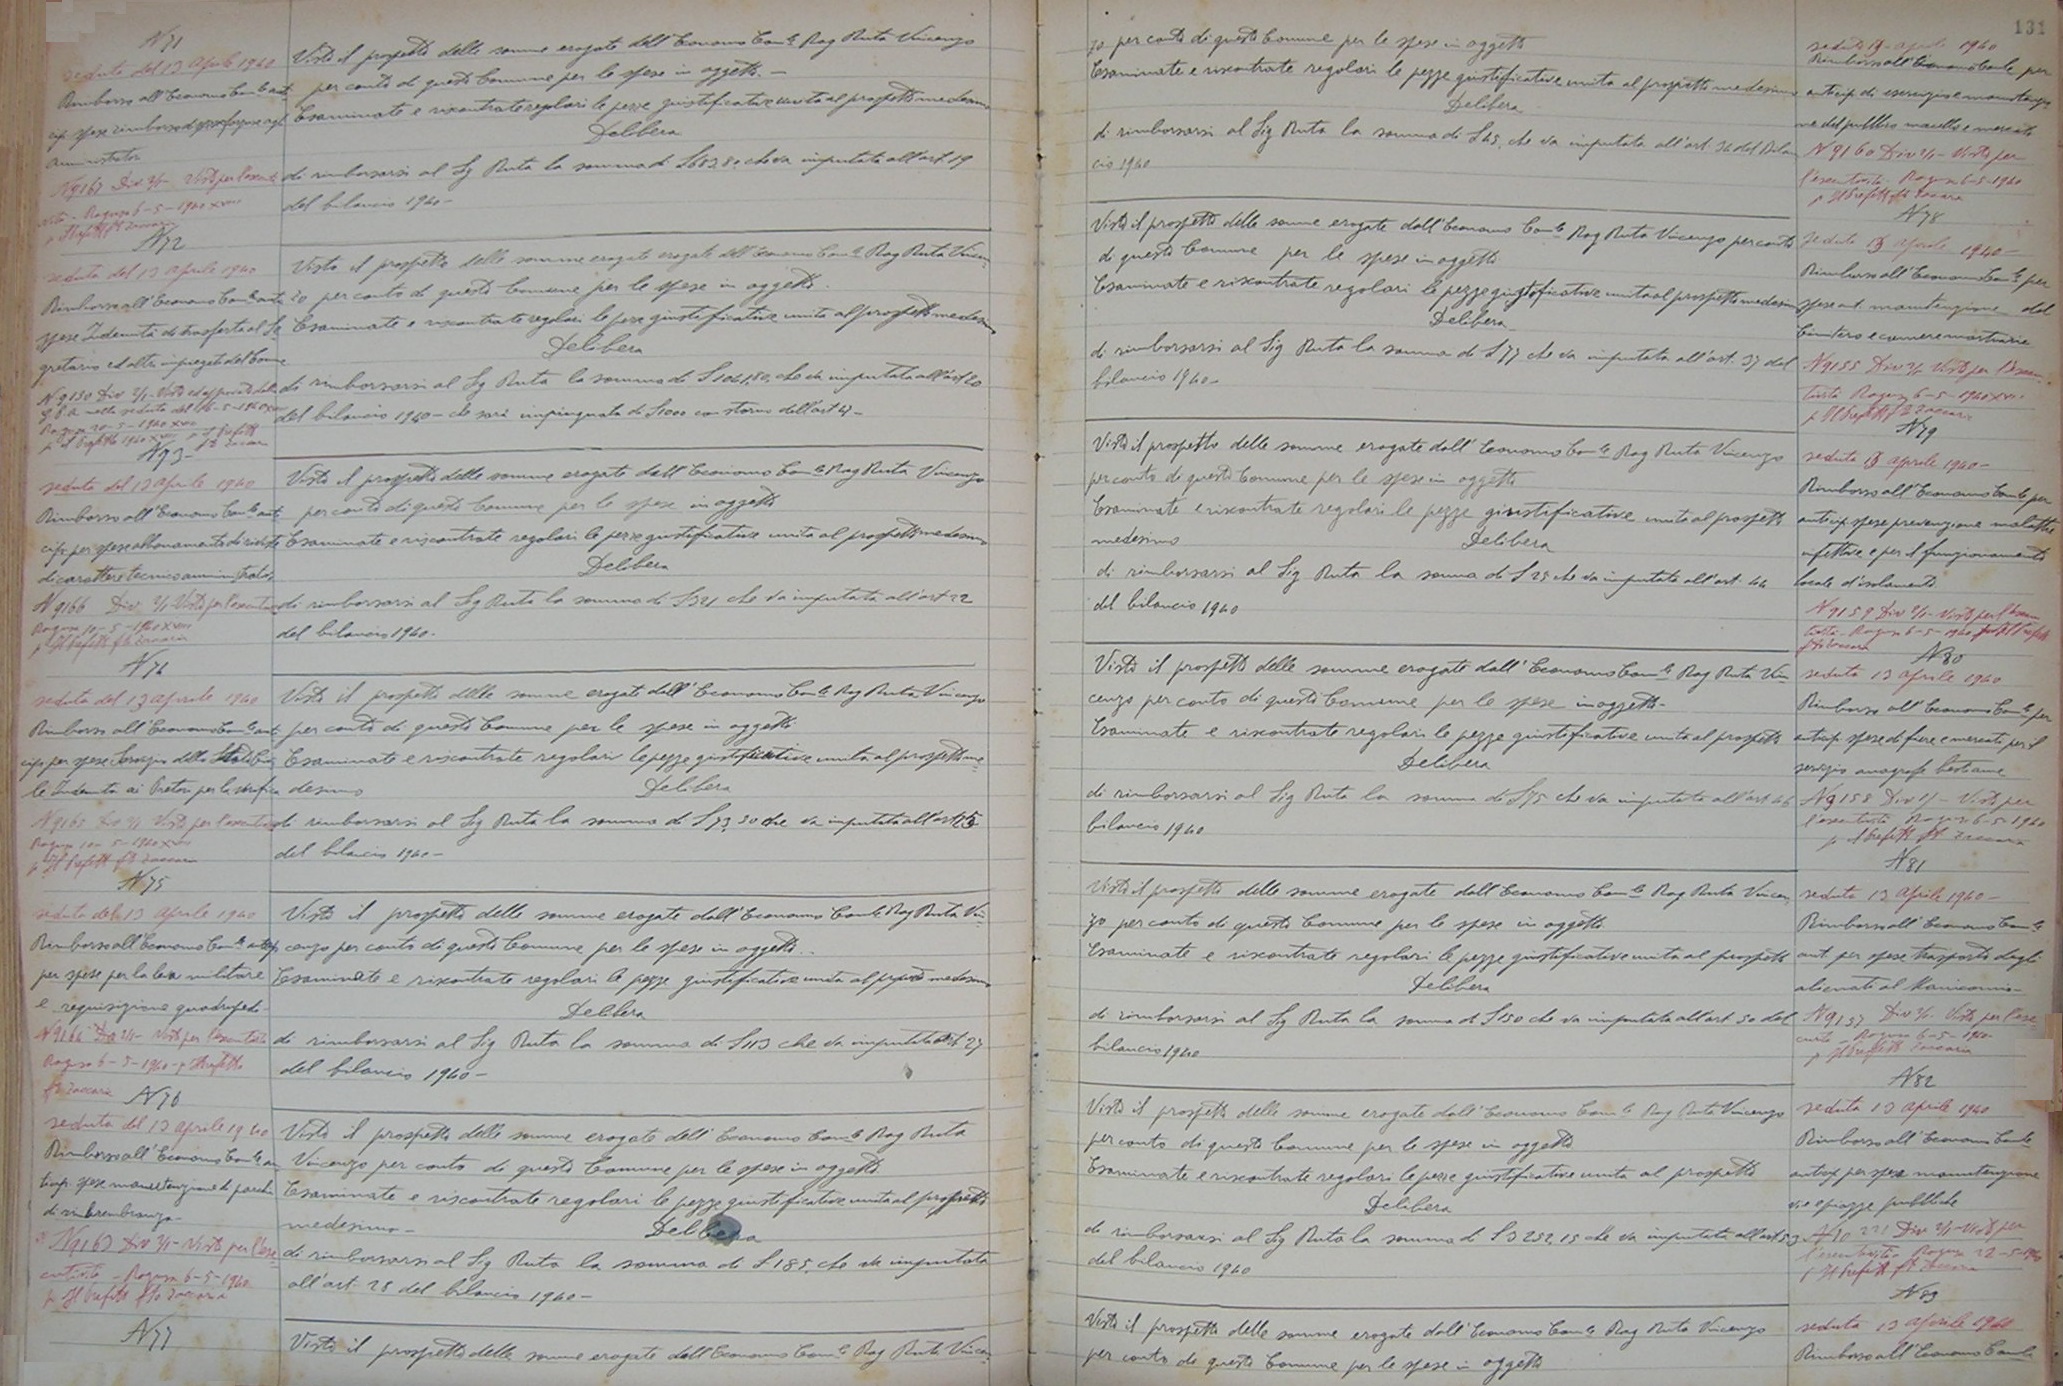 N 71
seduta del 13 Aprile 1940
Rimborso all'Economo Com.le anti
cip. spese rimborso spese forzose agli
amministratori
N 9167 Div 2/1 Visto per l'esecuto
rietà - Ragusa 6-5-1940 XVIII
p Il Prefetto f.to Zaccaria
Visto il prospetto delle somme erogate dall'Economo Com.le Rag Ruta Vincenzo
per conto di questo Comune per le spese in oggetto. -
Esaminate e riscontrate regolari le pezze giustificative unite al prospetto medesimo
Delibera
di rimborsarsi al Sig Ruta la somma di £ 683,80 che va imputata all'art. 19
del bilancio 1940 -
N 72
seduta del 13 Aprile 1940
Rimborso all'Economo Com.le antic
spese Indennità di trasferta al Se
gretario ed altri impiegati del Comune
N 9150 Div 2/1 - Visto ed approvato dalla
G.P.A. nella seduta del 16-5-1940 XVIII
Ragusa 20-5-1940 XVIII
p Il Prefetto f.to Zaccaria
Visto il prospetto delle somme erogate erogate dall'Economo Com.le Rag Ruta Vincen
zo per conto di questo Comune per le spese in oggetto.
Esaminate e riscontrate regolari le pezze giustificative unite al prospetto medesimo
Delibera
di rimborsarsi al Sig Ruta la somma di £ 1061,80, che va imputata all'art 20
del bilancio 1940 - che sarà impinguata di £ 1000 con storno dall'art 47 -
N 73 -
seduta del 13 Aprile 1940
Rimborso all'Economo Com.le anti
cip. per spese abbonamento di riviste
di carattere tecnico amministrativo
N 9166 Div. 2/1 Visto per l'esecutorietà
Ragusa 10-5-1940 XVIII
p Il Prefetto f.to Zaccaria
Visto il prospetto delle somme erogate dall'Economo Com.le Rag Ruta Vincenzo
per conto di questo Comune per le spese in oggetto
Esaminate e riscontrate regolari le pezze giustificative unite al prospetto medesimo
Delibera
di rimborsarsi al Sig Ruta la somma di £ 321 che va imputata all'art 22
del bilancio 1940 -
N 74
seduta del 13 Aprile 1940
Rimborso all'Economo Com.le anti
cip. per spese Servizio dello Stato Civi
le Indennità ai Pretori per la verifica
N 9165 Div 2/1 Visto per l'esecutorietà
Ragusa 10-5-1940 XVIII
p Il Prefetto f.to Zaccaria
Visto il prospetto delle somme erogate dall'Economo Com.le Rag Ruta Vincenzo
per conto di questo Comune per le spese in oggetto
Esaminate e riscontrate regolari le pezze giustificative unite al prospetto me-
desimo Delibera
di rimborsarsi al Sig Ruta la somma di £ 73,30 che va imputata all'art 25
del bilancio 1940 -
N 75
seduta del 13 Aprile 1940
Rimborso all'Economo Com.le anticip
per spese per la leva militare
e requisizione quadrupedi -
N 9164 Div 2/1 - Visto per l'esecutorietà
Ragusa 6-5-1940 - p Il Prefetto
f.to Zaccaria
Visto il prospetto delle somme erogate dall'Economo Com.le Rag Ruta Vin-
cenzo per conto di questo Comune per le spese in oggetto..
Esaminate e riscontrate regolari le pezze giustificative unite al prospetto medesimo
Delibera
di rimborsarsi al Sig Ruta la somma di £ 113 che va imputata all'art 27
del bilancio 1940 -
N 76
seduta del 13 Aprile 1940
Rimborso all'Economo Com.le an
ticip. spese manutenzione di parchi
di rimembranza -
N 9163 Div 2/1 - Visto per l'ese
cutorietà - Ragusa 6-5-1940
p Il Prefetto f.to Zaccaria
Visto il prospetto delle somme erogate dall'Economo Com.le Rag Ruta
Vincenzo per conto di questo Comune per le spese in oggetto
Esaminate e riscontrate regolari le pezze giustificative unite al prospetto
medesimo - Delibera
di rimborsarsi al Sig Ruta la somma di £ 185, che va imputata
all'art. 28 del bilancio 1940 -
N 77
Visto il prospetto delle somme erogate dall'Economo Com.le Rag Ruta Vincen
131
zo per conto di questo Comune per le spese in oggetto
Esaminate e riscontrate regolari le pezze giustificative unite al prospetto medesimo
Delibera
di rimborsarsi al Sig Ruta la somma di £ 45, che va imputata all'art. 36 del bilan
cio 1940
seduta 13 - aprile 1940
Rimborso all'Economo Com.le per
anticip. di esercizio e manutenzio
ne del pubblico macello e mercato
N 9160 Div 2/1 - Visto per
l'esecutorietà - Ragusa 6-5-1940
p Il Prefetto f.to Zaccaria
N 78
Visto il prospetto delle somme erogate dall'Economo Com.le Rag Ruta Vincenzo per conto
di questo Comune per le spese in oggetto
Esaminate e riscontrate regolari le pezze giustificative unite al prospetto medesimo
Delibera
di rimborsarsi al Sig Ruta la somma di £ 77 che va imputata all'art. 37 del
bilancio 1940 -
seduta 13 aprile 1940 -
Rimborso all'Economo Com.le per
spese ant. manutenzione del
Cimitero e camere mortuarie
N 9155 Div 2/1 Visto per l'esecu
torietà Ragusa 6-5-1940 XVIII
p Il Prefetto f.to Zaccaria
N 79
Visto il prospetto delle somme erogate dall'Economo Com.le Rag Ruta Vincenzo
per conto di questo Comune per le spese in oggetto
Esaminate e riscontrate regolari le pezze giustificative unite al prospetto
medesimo Delibera
di rimborsarsi al Sig Ruta la somma di £ 25 che va imputata all'art. 44
del bilancio 1940
seduta 13 aprile 1940 -
Rimborso all'Economo Com.le per
anticip spese prevenzione malattie
infettive e per il funzionamento
locale d'isolamento
N 9159 Div 2/1 - Visto per l'esecu
torietà - Ragusa 6-5-1940 p Il Prefetto
f.to Zaccaria
N 80
Visto il prospetto delle somme erogate dall'Economo Com.le Rag Ruta Vin
cenzo per conto di questo Comune per le spese in oggetto -
Esaminate e riscontrate regolari le pezze giustificative unite al prospetto
Delibera
di rimborsarsi al Sig Ruta la somma di £ 75 che va imputata all'art 46
bilancio 1940
seduta 13 aprile 1940
Rimborso all'Economo Com.le per
anticip. spese di fiere e mercati per il
servizio anagrafe bestiame
N 9158 Div 2/1 - Visto per
l'esecutorietà Ragusa 6-5-1940
p Il Prefetto f.to Zaccaria
N 81
Visto il prospetto delle somme erogate dall'Economo Com.le Rag Ruta Vincen
zo per conto di questo Comune per le spese in oggetto
Esaminate e riscontrate regolari le pezze giustificative unite al prospetto
Delibera
di rimborsarsi al Sig Ruta la somma di £ 150 che va imputata all'art. 50 del
bilancio 1940
seduta 13 Aprile 1940 -
Rimborso all'Economo Com.le
ant. per spese trasporto degli
alienati al Manicomio -
N 9157 Div 2/1 - Visto per l'ese
cuto - Ragusa 6-5-1940
p Il Prefetto Zaccaria
N 82
Visto il prospetto delle somme erogate dall'Economo Com.le Rag Ruta Vincenzo
per conto di questo Comune per le spese in oggetto
Esaminate e riscontrate regolari le pezze giustificative unite al prospetto
Delibera
di rimborsarsi al Sig Ruta la somma di £ 3252,15 che va imputata all'art 53
del bilancio 1940
seduta 13 aprile 1940
Rimborso all'Economo Com.le
anticip per spese manutenzione
vie e piazze pubbliche
Div 2/1 - Visto per
l'esecutorietà - Ragusa 22-5-1940
p Il Prefetto f.to Zaccaria
N 83
Visto il prospetto delle somme erogate dall'Economo Com.le Rag Ruta Vincenzo
per conto di questo Comune per le spese in oggetto
seduta 13 aprile 1940
Rimborso all'Economo Com.le